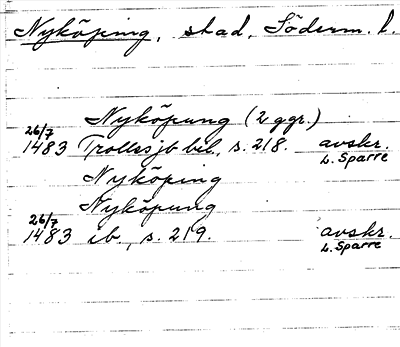 Nyköping, stad, Söderm. l.
Nyköpung (2 ggr.)
26/7
1483 Trollesjb bil, s. 218. avskr.
L. Sparre
Nyköping
Nyköpung
26/7
1483 ib., s. 219. avskr.
L. Sparre